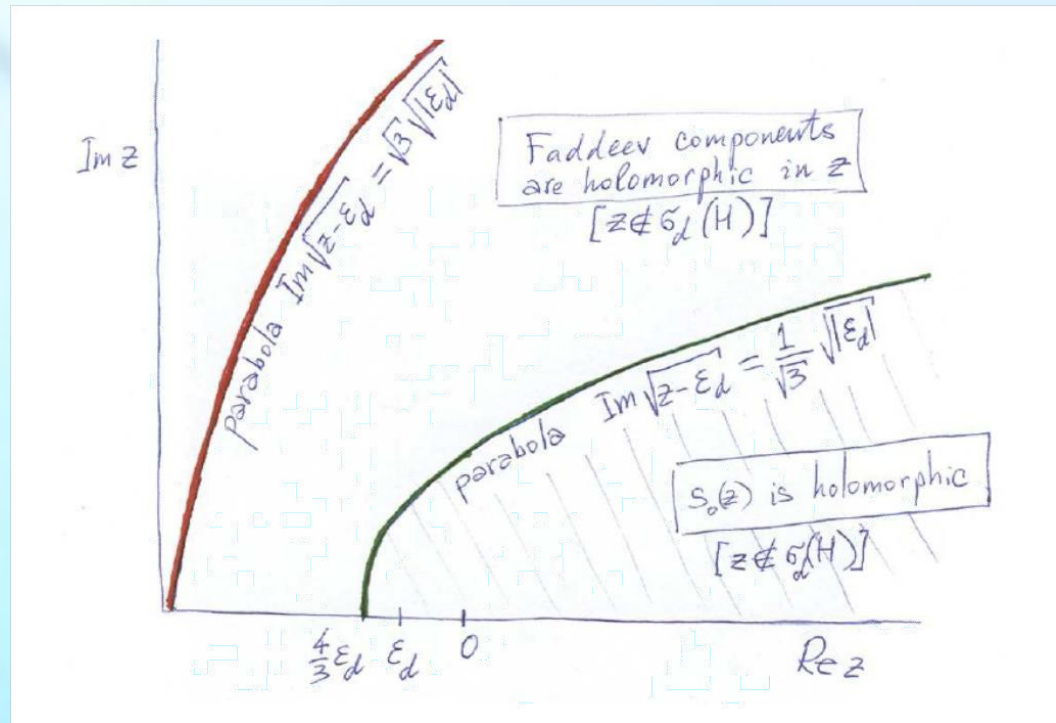 Im z
parabola Im√(z-ε_d) = √3 √|ε_d|
Faddeev components
are holomorphic in z
[z∉σ_d(H)]
parabola Im√(z-ε_d) = 1/√3 √|ε_d|
S₀(z) is holomorphic
[z∉σ_d(H)]
4/3 ε_d ε_d 0
Re z